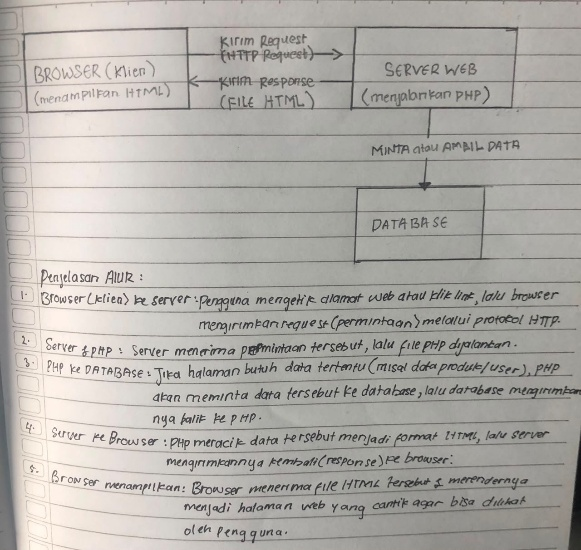 BROWSER (Klien)
(menampilkan HTML)
Kirim Request
(HTTP Request)
Kirim Response
(FILE HTML)
SERVER WEB
(menjalankan PHP)
MINTA atau AMBIL DATA
DATABASE
Penjelasan Alur :
1. Browser (klien) ke server : Pengguna mengetik alamat web atau klik link, lalu browser
mengirimkan request (permintaan) melalui protokol HTTP.
2. Server & PHP : Server menerima permintaan tersebut, lalu file PHP dijalankan.
3. PHP ke DATABASE : Jika halaman butuh data tertentu (misal data produk/user), PHP
akan meminta data tersebut ke database, lalu database mengirimkan
nya balik ke PHP.
4. Server ke Browser : PHP meracik data tersebut menjadi format HTML, lalu server
mengirimkannya kembali (response) ke browser.
5. Browser menampilkan : Browser menerima file HTML tersebut & merendernya
menjadi halaman web yang cantik agar bisa dilihat
oleh pengguna.